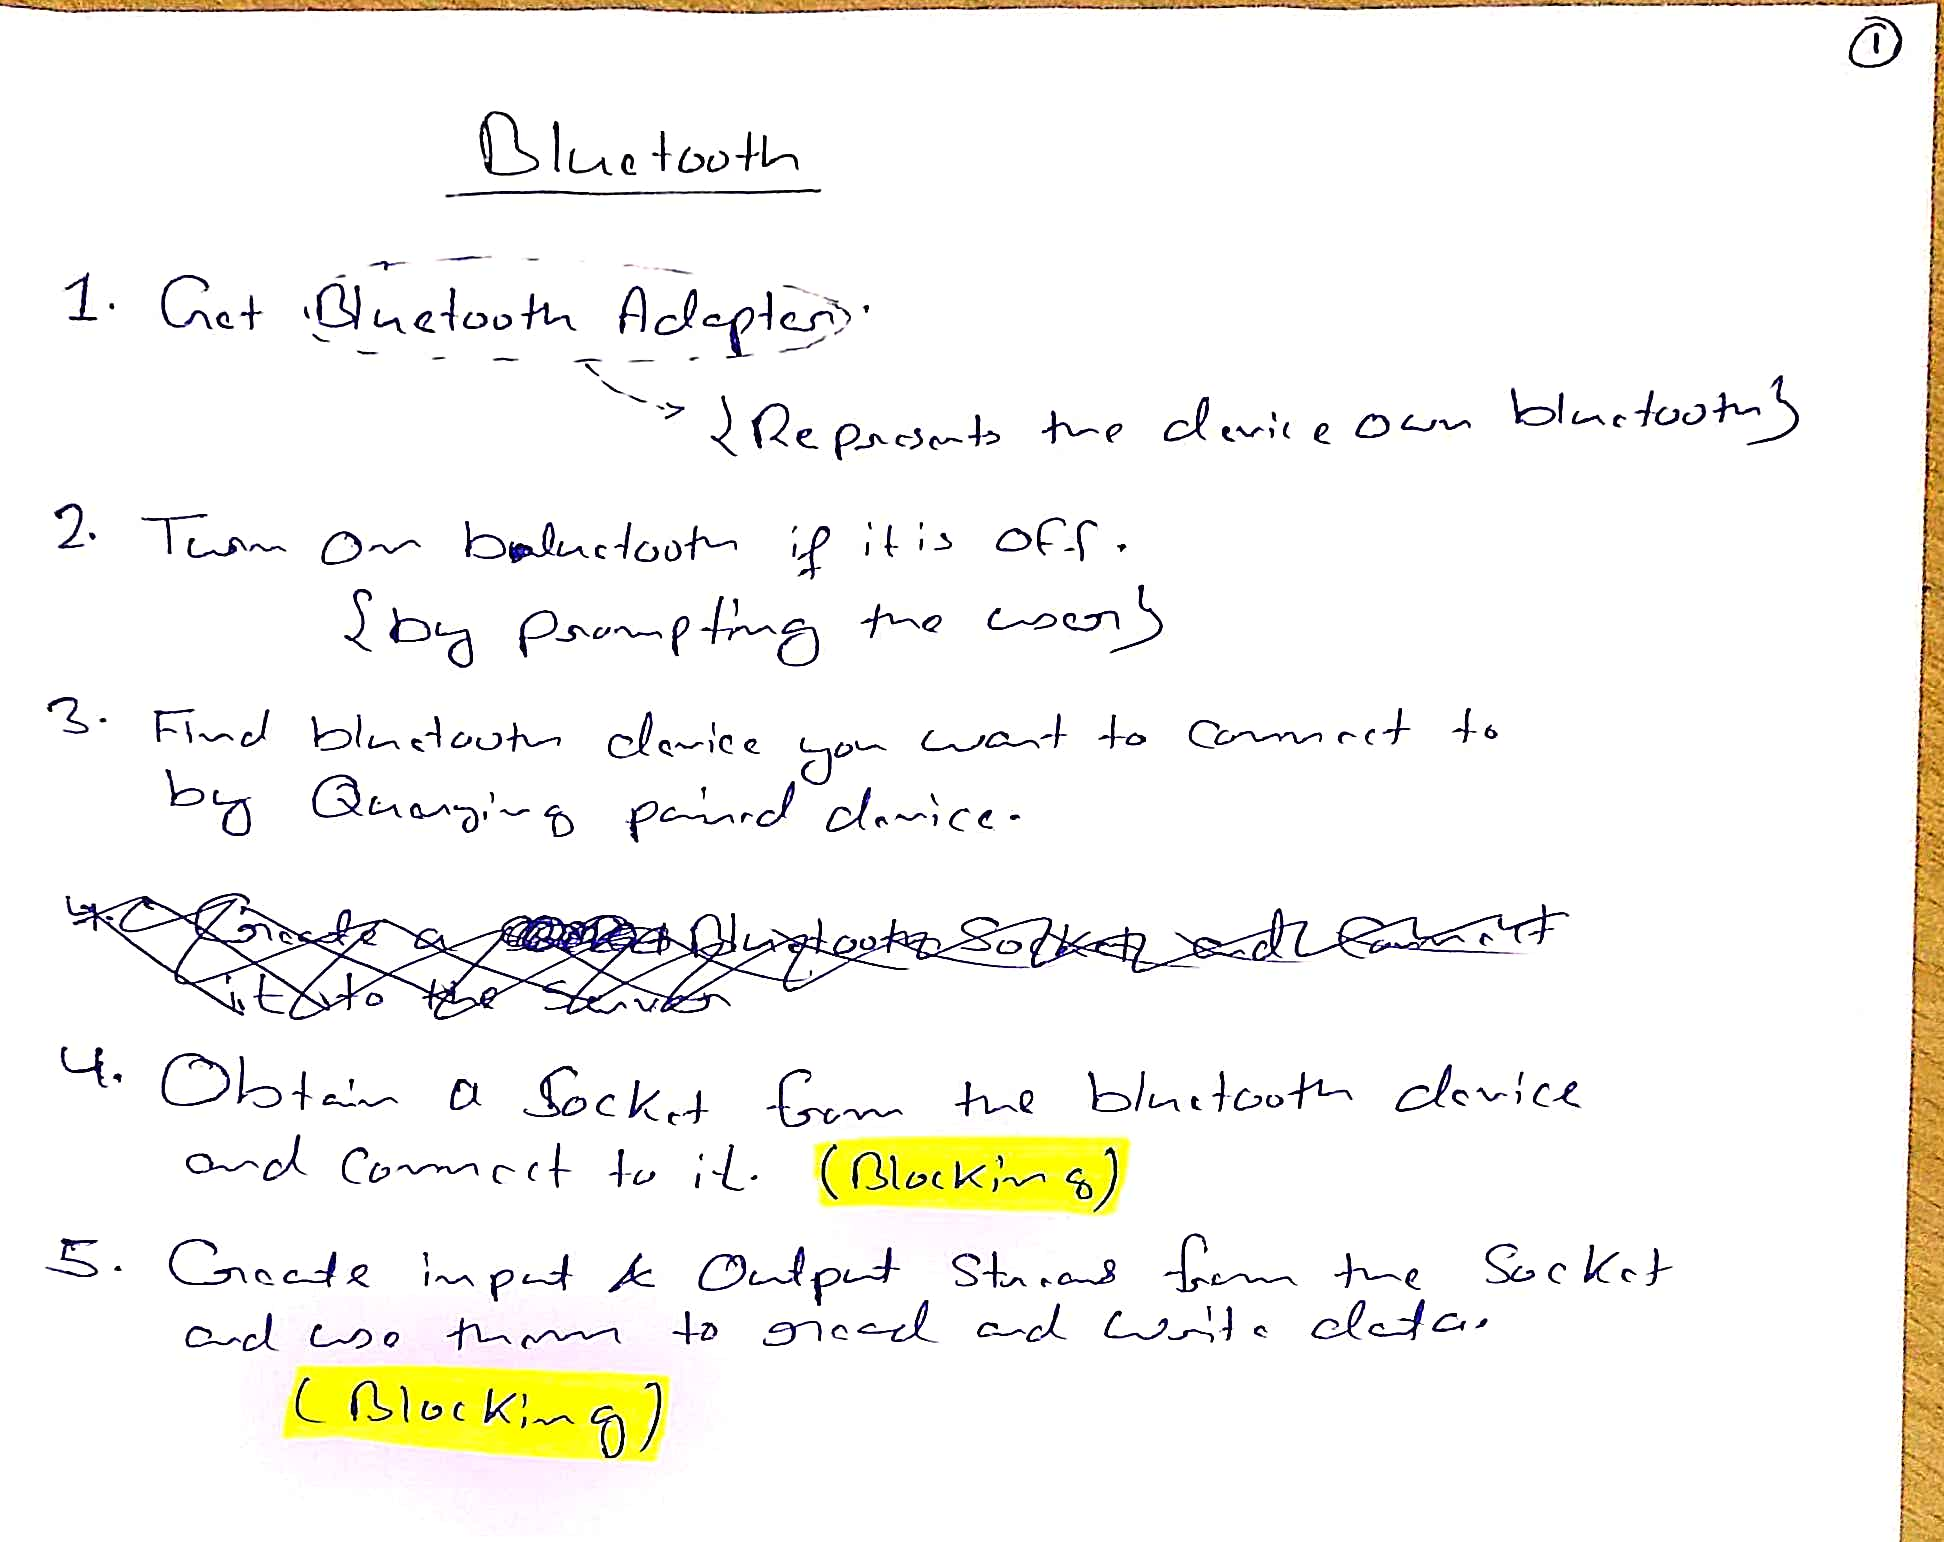 ①
Bluetooth
1. Get Bluetooth Adapter.
{Represents the device own bluetooth}
2. Turn on bluetooth if it is off.
{by prompting the user}
3. Find bluetooth device you want to connect to
by Querying paired device.
4. Create a Bluetooth Socket and Connect
it to the Server
4. Obtain a Socket from the bluetooth device
and connect to it. (Blocking)
5. Create input & Output Streams from the Socket
and use them to read and write data.
(Blocking)